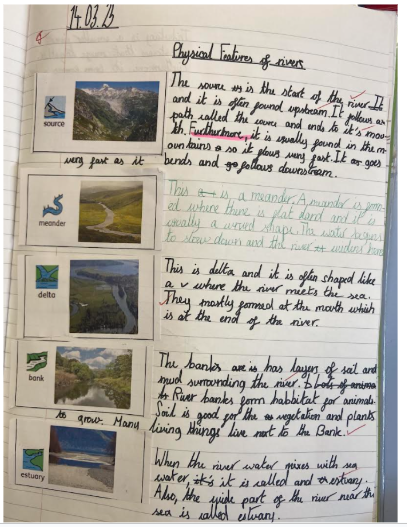 14.03.23
Physical Features of rivers
The source is is the start of the river. It
and it is often found upstream. It follows a
path called the source and ends to it's mou-
th. Furthermore, it is usually found in the m-
ountains so it flows very fast. It goes
very fast as it bends and go follows downstream.
source
This is a meander. A meander is form-
ed where there is flat land and it is
usually a weird shape. The water begins
to slow down and the river
meander
This is delta and it is often shaped like
a v where the river meets the sea.
They mostly formed at the mouth which
is at the end of the river.
delta
The banks are is has layers of soil and
mud surrounding the river.
River banks form habbitat for animals.
Soil is good for the vegetation and plants
to grow. Many living things live next to the Bank.
bank
When the river water mixes with sea
water, it's it is called and estuary.
Also, the wide part of the river near the
sea is called estuary.
estuary